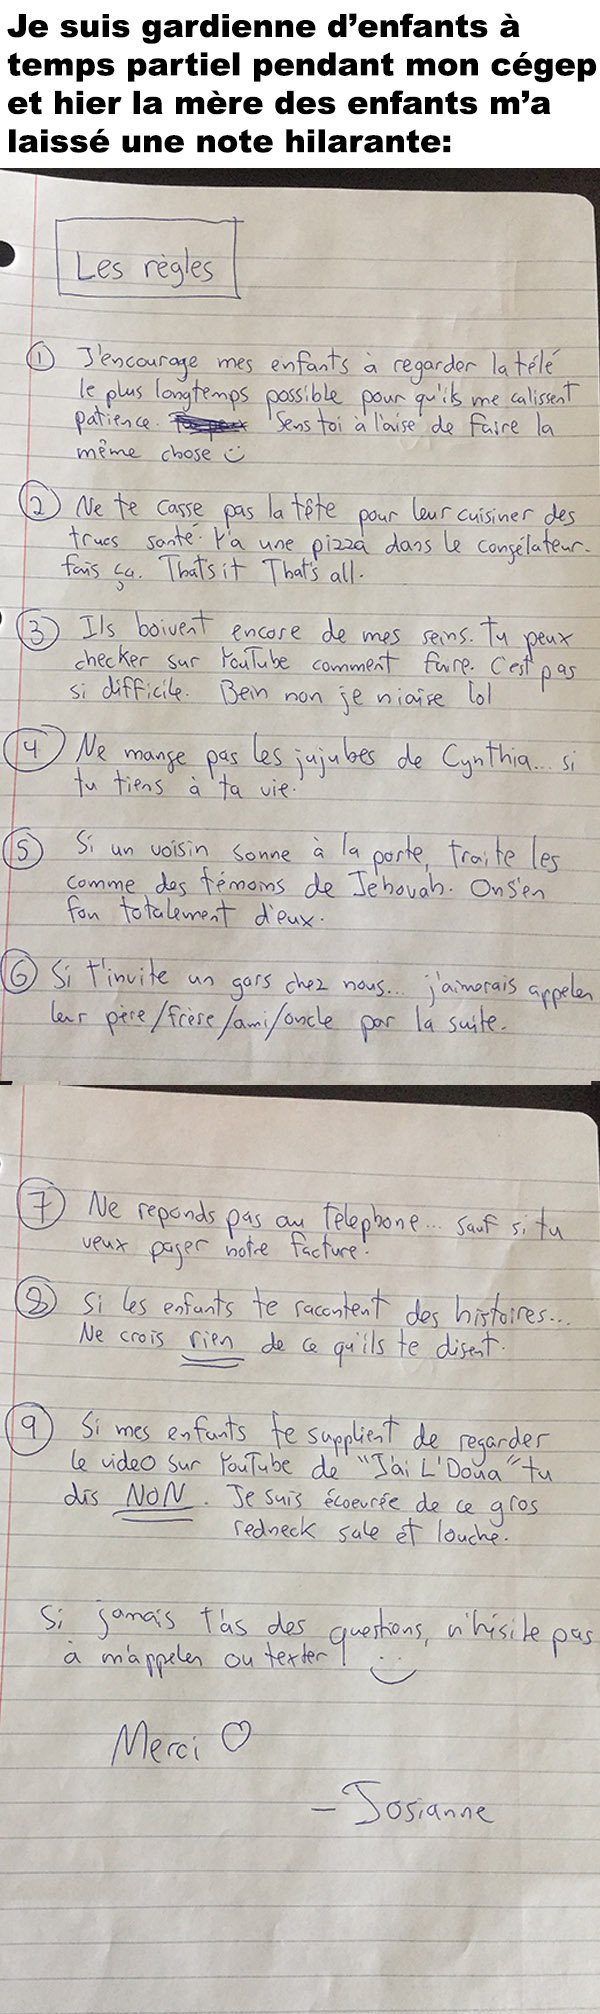 Je suis gardienne d’enfants à
temps partiel pendant mon cégep
et hier la mère des enfants m’a
laissé une note hilarante:
Les règles
① J'encourage mes enfants à regarder la télé
le plus longtemps possible pour qu'ils me calissent
patience. Sens toi à l'aise de faire la
même chose ☺
② Ne te casse pas la tête pour leur cuisiner des
trucs santé. Y'a une pizza dans le congélateur.
fais ça. That's it That's all.
③ Ils boivent encore de mes seins. Tu peux
checker sur YouTube comment faire. C'est pas
si difficile. Bein non je niaise lol
④ Ne mange pas les jujubes de Cynthia... si
tu tiens à ta vie.
⑤ Si un voisin sonne à la porte, traite les
comme des témoins de Jehovah. On s'en
fou totalement d'eux.
⑥ Si t'invite un gars chez nous... j'aimerais appeler
leur père/frère/ami/oncle par la suite.
⑦ Ne reponds pas au téléphone... sauf si tu
veux payer notre facture.
⑧ Si les enfants te racontent des histoires...
Ne crois rien de ce qu'ils te disent.
⑨ Si mes enfants te supplient de regarder
le video sur YouTube de "J'ai L'Doua" tu
dis NON. Je suis écoeurée de ce gros
redneck sale et louche.
Si jamais t'as des questions, n'hésite pas
à m'appeler ou texter! ☺
Merci ♡
- Josianne